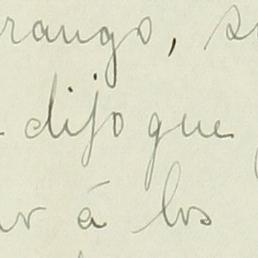 rango, s
dijo que
ar á los